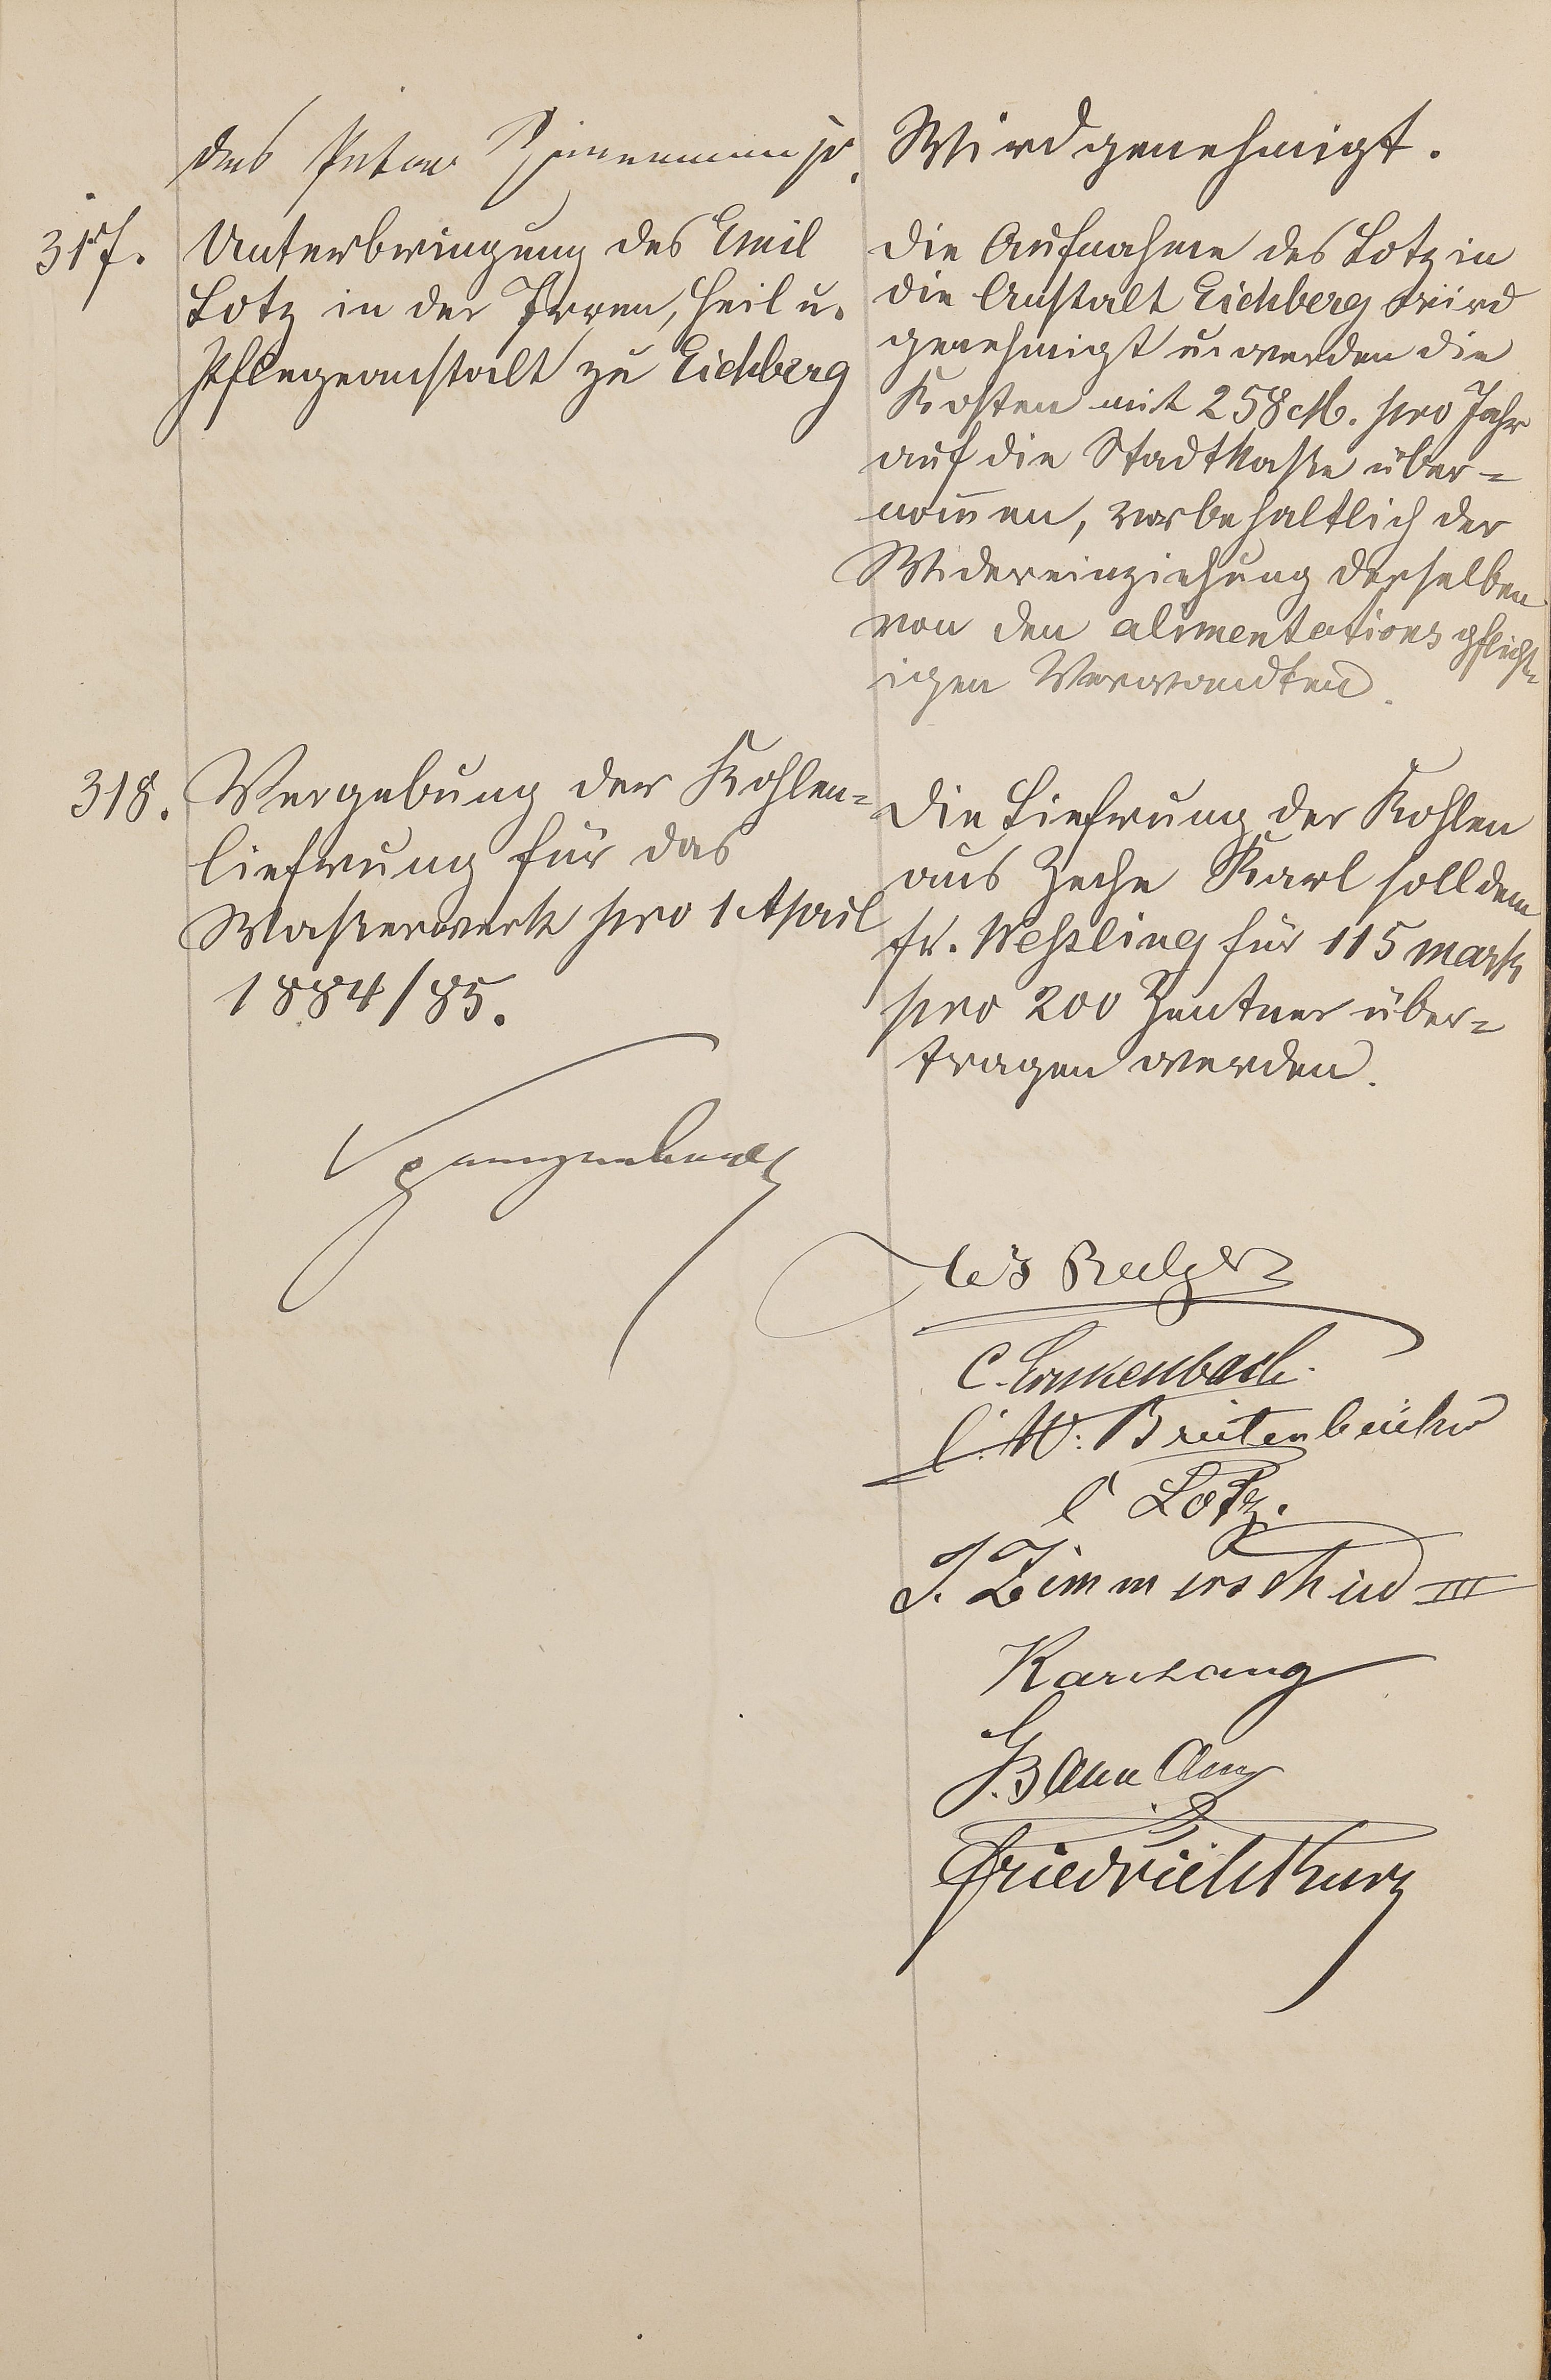 des Peter Zimmermann jr.
Wird genehmigt.
317.
Unterbringung des Emil
Lotz in der Irren, Heil u.
Pflegeanstalt zu Eichberg
Die Aufnahme des Lotz in
die Anstalt Eichberg wird
genehmigt u. werden die
Kosten mit 258 M. pro Jahr
auf die Stadtkasse über-
nom̅en, vorbehaltlich der
Widereinziehung derselben
von den alimentationspflicht-
igen Verwandten.
318.
Vergebung der Kohlen-
liefrung für das
Wasserwerk pro 1 April
1884/85.
Die Liefrung der Kohlen
aus Zeche Karl soll dem
Fr. Weßling für 115 Mark
pro 200 Zentner über-
tragen werden.
Spangenberg
C. Linkenbach.
C. W. Breitenbücher
C Lotz.
J. Zimmerschied III
Friedrich Kurz